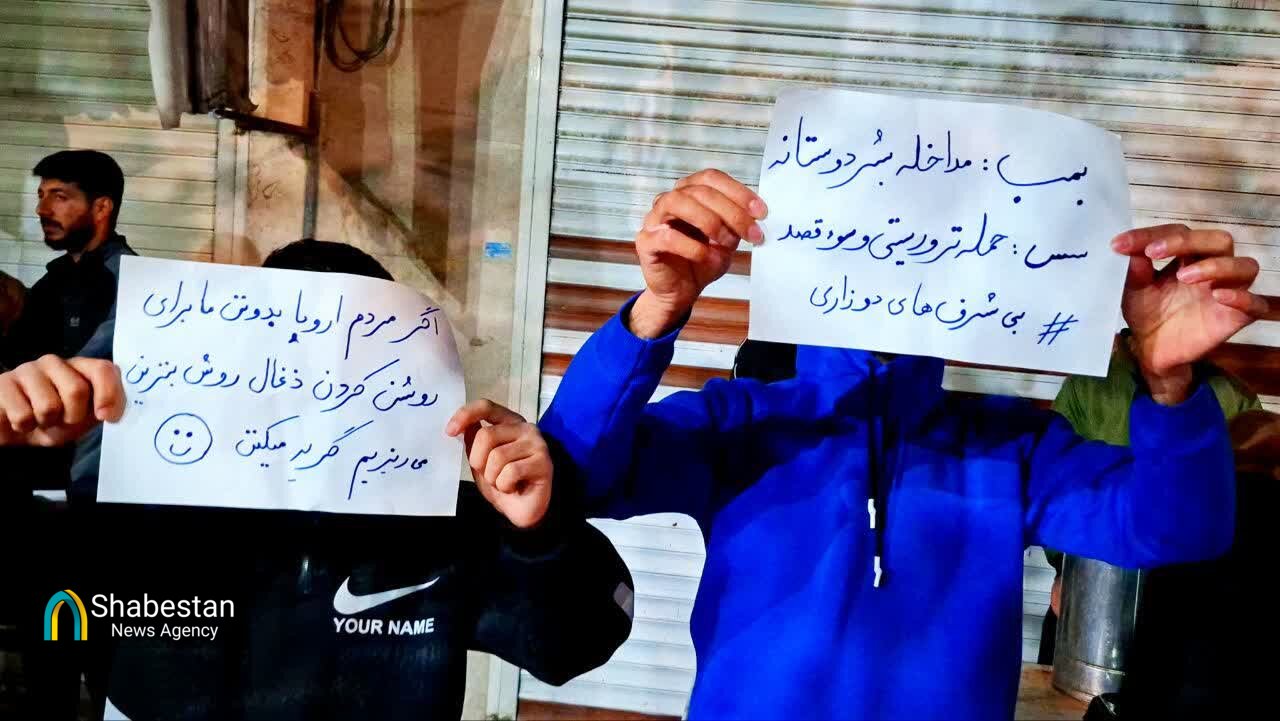 بمب: مداخله بشردوستانه
سس: حمله تروریستی و سوء قصد
# بی شرف های دوزاری
اگر مردم اروپا بدونن ما برای
روشن کردن ذغال روش بنزین
می‌ریزیم گریه میکنن
YOUR NAME
Shabestan
News Agency